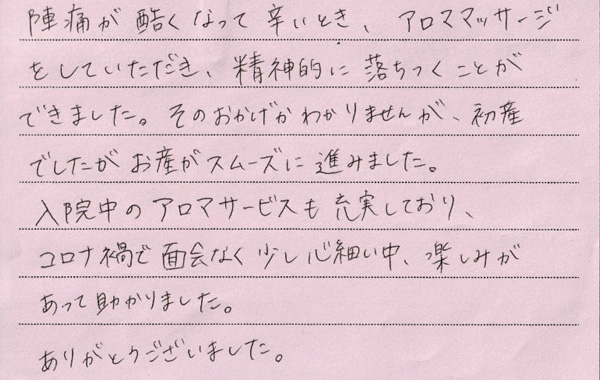 陣痛が酷くなって辛いとき、アロママッサージ
をしていただき、精神的に落ちつくことが
できました。そのおかげかわかりませんが、初産
でしたがお産がスムーズに進みました。
入院中のアロマサービスも充実しており、
コロナ禍で面会なく少し心細い中、楽しみが
あって助かりました。
ありがとうございました。